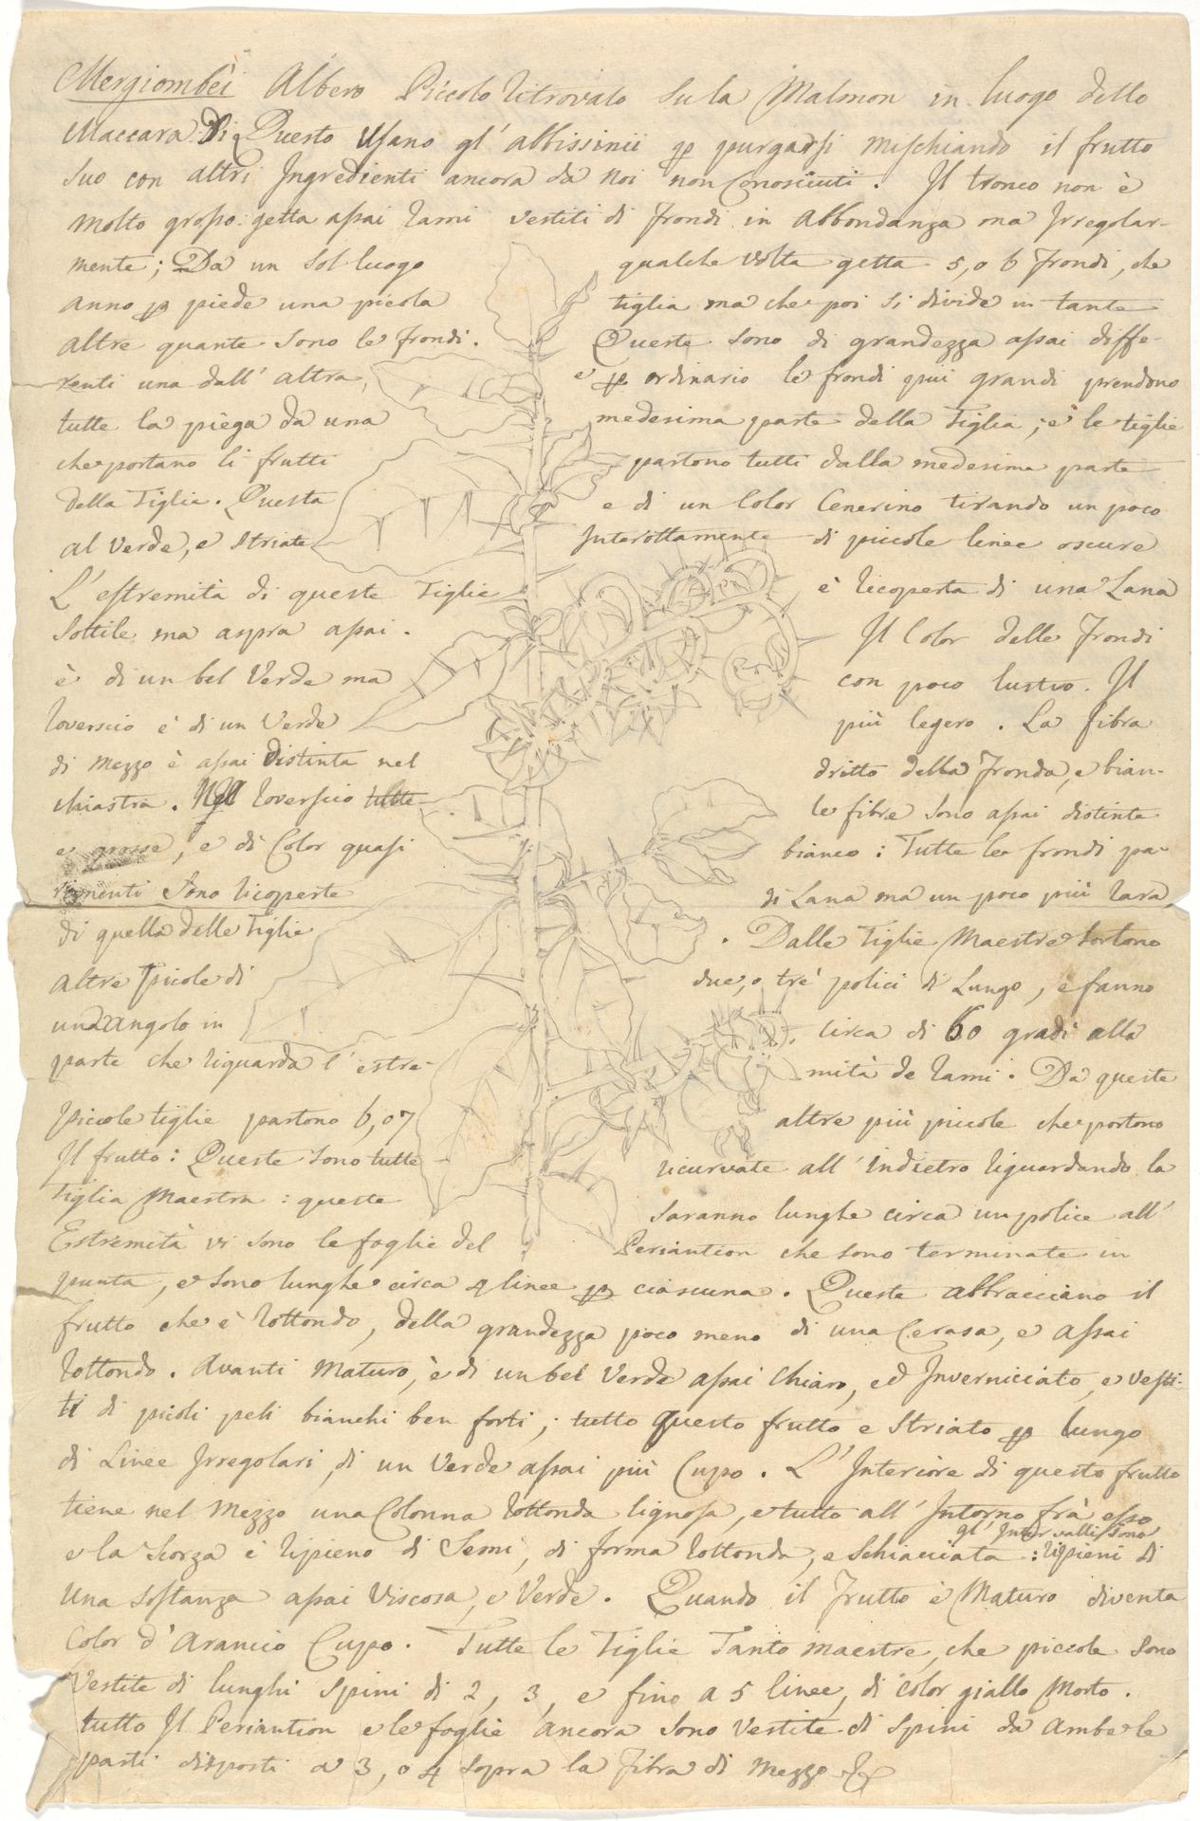 Mergiombëi Albero Piccolo ritrovato su la Malmon in luogo detto
Maccara Di Questo usano gl' abbissinii p purgarsi mischiando il frutto
suo con altri Ingredienti ancora da noi non Conosciuti. Il tronco non è
molto grosso: getta assai rami vestiti di frondi in abbondanza ma Irregolar-
mente; Da un sol luogo qualche volta getta 5, o 6 frondi, che
anno p piede una picola tiglia ma che poi si divide in tante
altre quante sono le frondi. Queste sono di grandezza assai diffe-
renti una dall' altra, e p ordinario le frondi piùi grandi prendono
tutte la piega da una medesima parte della Tiglia; e le tiglie
che portano li frutti partono tutti dalla medesima parte
della Tiglia. Questa e di un Color Cenerino tirando un poco
al verde, e striate Interottamente di piccole linee oscure
L'estremità di queste Tiglie è ricoperta di una Lana
sottile ma aspra assai. Il Color delle frondi
è di un bel Verde ma con poco lustro. Il
roverscio è di un Verde più legero. La fibra
di mezzo è assai distinta nel dritto della Fronda, e bian-
chiastra. Nel roverscio tutte le fibre sono assai distinte
e grosse, e di Color quasi bianco: Tutte le frondi pa-
rimenti sono ricoperte di Lana ma un poco più rara
di quella delle Tiglie. Dalle Tiglie Maestre sortono
altre picole di due, o trè polici di Lungo, e fanno
un angolo in circa di 60 gradi alla
parte che riguarda l'estre- mità de rami. Da queste
piccole tiglie partono 6, o 7 altre più piccole che portono
Il frutto: Queste sono tutte ricurvate all' indietro riguardando la
Tiglia Maestra: queste saranno lunghe circa un police all'
Estremità vi sono le foglie del Periantion che sono terminate in
punta, e sono lunghe circa 4 linee p ciascuna. Queste abbracciano il
frutto che è rottondo, della grandezza poco meno di una Cerasa, e assai
rottondo. Avanti Maturo, è di un bel Verde assai chiaro, ed Inverniciato, e vesti-
ti di picoli peli bianchi ben forti; tutto questo frutto e striato p lungo
di Linee Irregolari, di un Verde assai più Cupo. L'Interiore di questo frutto
tiene nel Mezzo una Colonna rottonda lignosa, e tutto all' Intorno frà esso
e la scorza è ripieno di Semi, di forma rottonda, e schiacciata: gl' Intervalli sono ripieni di
una sostanza assai Viscosa, e Verde. Quando il Frutto è Maturo diventa
Color d'Arancio Cupo. Tutte le Tiglie Tanto maestre, che piccole sono
vestite di lunghi spini di 2, 3, e fino a 5 linee, di color giallo Morto.
tutto Il Periantion e le foglie ancora sono vestite di spini da ambe le
parti disposti a 3, o 4 sopra la fibra di mezzo